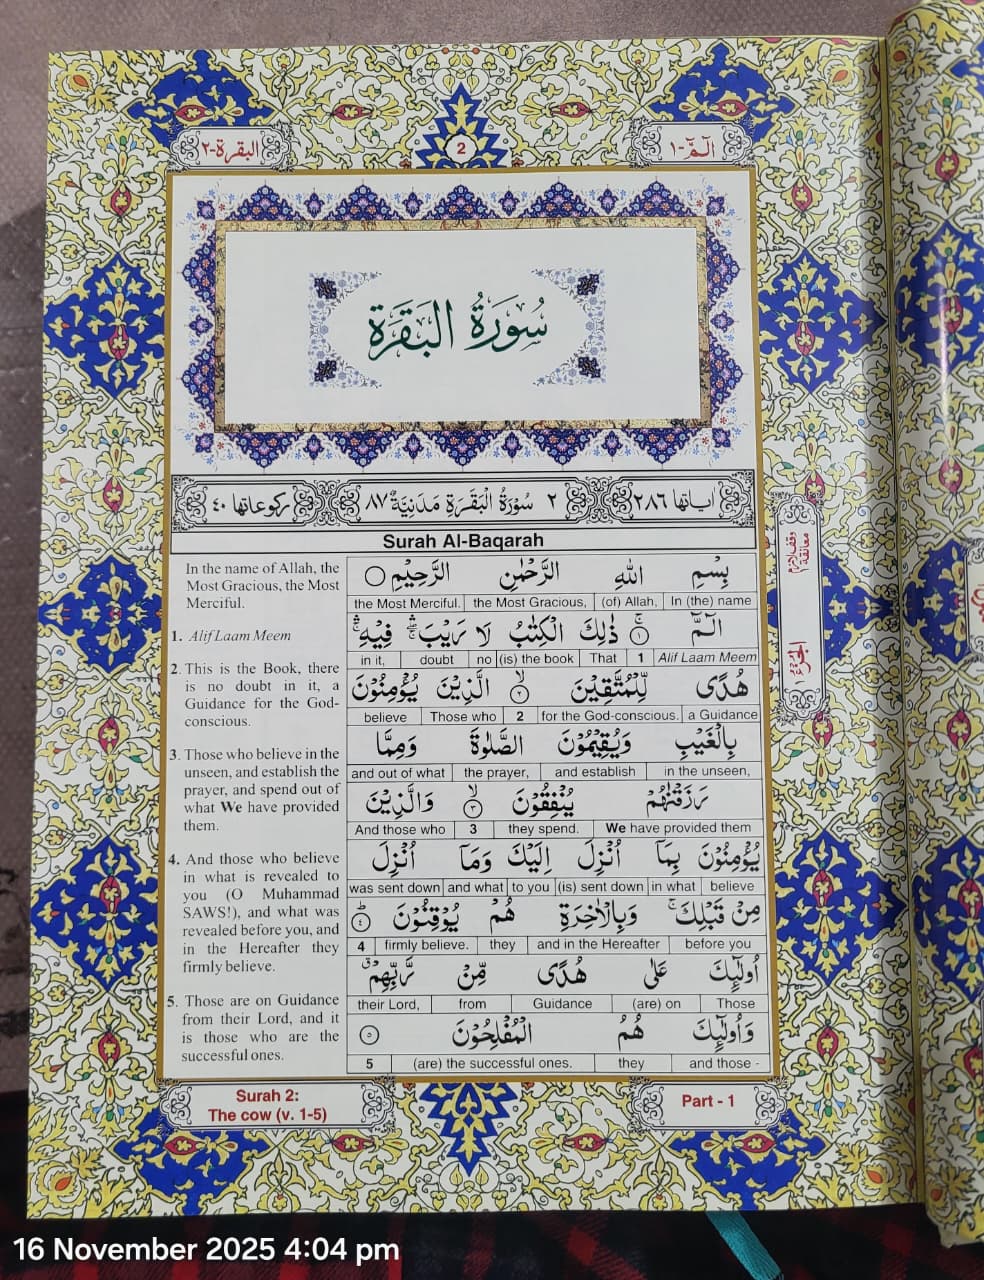 البقرة-٢
2
الٓمّٓ-١
سُورَةُ البَقَرَة
اٰیاتها ٢٨٦
٢ سُوْرَةُ الْبَقَرَةِ مَدَنِيَّةٌ ٨٧
رکوعاتها ٤٠
Surah Al-Baqarah
In the name of Allah, the
Most Gracious, the Most
Merciful.
1. Alif Laam Meem
2. This is the Book, there
is no doubt in it, a
Guidance for the God-
conscious.
3. Those who believe in the
unseen, and establish the
prayer, and spend out of
what We have provided
them.
4. And those who believe
in what is revealed to
you (O Muhammad
SAWS!), and what was
revealed before you, and
in the Hereafter they
firmly believe.
5. Those are on Guidance
from their Lord, and it
is those who are the
successful ones.
بِسْمِ اللّٰهِ الرَّحْمٰنِ الرَّحِيْمِ
the Most Merciful. the Most Gracious, (of) Allah, In (the) name
الٓمّٓ ۚ ١ ذٰلِكَ الْكِتٰبُ لَا رَيْبَ ۛ فِيْهِ ۛ
in it, doubt no (is) the book That 1 Alif Laam Meem
هُدًى لِّلْمُتَّقِيْنَ ۙ ٢ الَّذِيْنَ يُؤْمِنُوْنَ
believe Those who 2 for the God-conscious. a Guidance
بِالْغَيْبِ وَيُقِيْمُوْنَ الصَّلٰوةَ وَمِمَّا
and out of what the prayer, and establish in the unseen,
رَزَقْنٰهُمْ يُنْفِقُوْنَ ۙ ٣ وَالَّذِيْنَ
And those who 3 they spend. We have provided them
يُؤْمِنُوْنَ بِمَآ اُنْزِلَ اِلَيْكَ وَمَآ اُنْزِلَ
was sent down and what to you (is) sent down in what believe
مِنْ قَبْلِكَ ۚ وَبِالْاٰخِرَةِ هُمْ يُوْقِنُوْنَ ؕ ٤
4 firmly believe. they and in the Hereafter before you
اُولٰٓئِكَ عَلٰى هُدًى مِّنْ رَّبِّهِمْ ۗ
their Lord, from Guidance (are) on Those
وَاُولٰٓئِكَ هُمُ الْمُفْلِحُوْنَ ٥
5 (are) the successful ones. they and those -
الجزء ١
Surah 2:
The cow (v. 1-5)
Part - 1
16 November 2025 4:04 pm